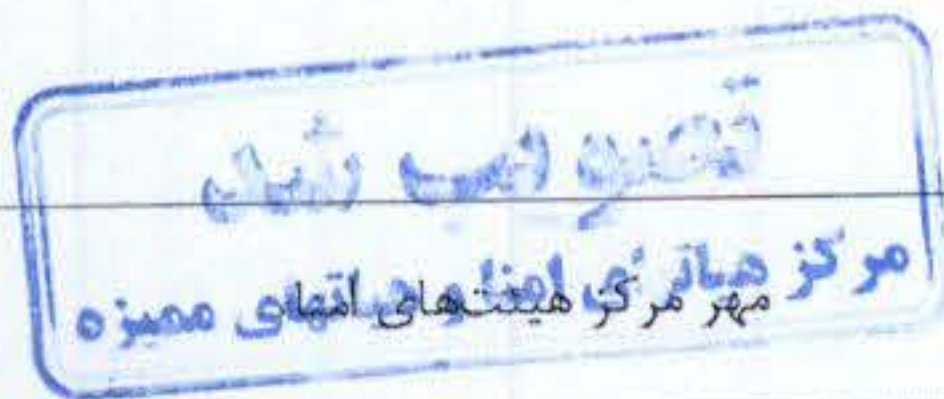 تصویب شد
مرکز هیأتهای امنا و هیأتهای ممیزه
مهر مرکز هیئت‌های امنا